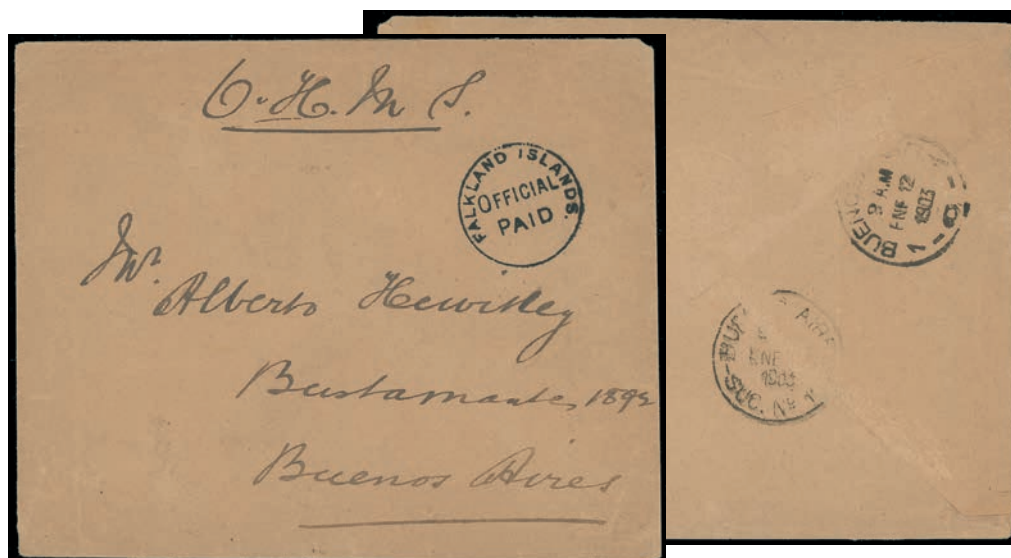 O.H.M S.
FALKLAND ISLANDS.
OFFICIAL
PAID
Mr.
Alberto
Bustamante, 1892
Buenos Aires
BUENO
9 A.M
ENE 12
1903
1
AIRE
ENE
1903
SUC. Nº 1